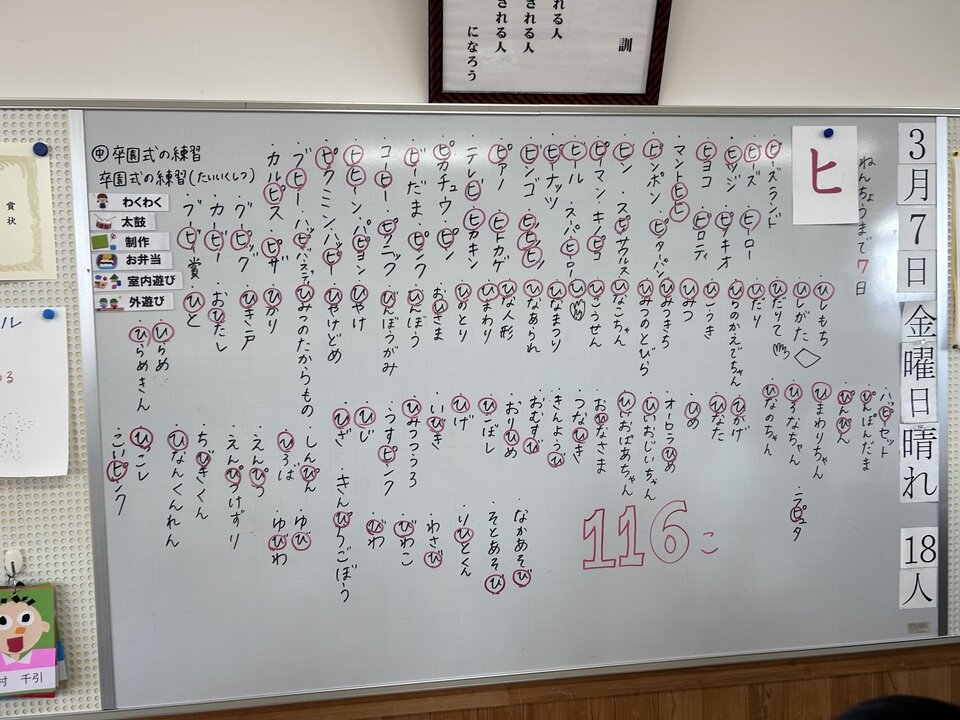 訓
される人
される人
になろう
3月7日金曜日晴れ 18人
ねんちょうまで7日
ヒ
・ビーズランド
・ビーズ ・ヒーロー
・ヒツジ ・ピノキオ
・ヒヨコ ・ピロティ
・マントヒヒ
・ピンポン ・ピタパン
・ピン
・ピーマン
・ヒル
・ピーナッツ
・ビンゴ
・ピアノ ・ヒトカゲ
・テレビ ・ヒカキン
・ピカチュウ
・ビーだま ・ピンク
・コーヒー ・ピクニック
・パピヨン
・ピクミン ・ハッピー
・カルピス ・ピザ
・ひしもち
・ひしがた
・ひだりて
・ひだり
・ひらのかえでちゃん
・ひこうき
・ひみつ
・ひみつきち
・ひみつのとびら
・ひなこちゃん
・ひこうせん
・ひなまつり
・ひなあられ
・ひな人形
・ひまわり
・ひのとり
・おひさま
・びんぼう
・びんぼうがみ
・ひやけ
・ひやけどめ
・ひみつのたからもの
・ひかり
・ひき戸
・おひたし
・ひと
・ひらめ
・ひらめきん
・ハッピーセット
・ぴんぽんだま
・ぴんぴん
・ひまわりちゃん
・ひろなちゃん ・ラピュタ
・ひなのちゃん
・ひかげ
・ひなた
・ひめ
・オーロラひめ
・ひいおじいちゃん
・ひいおばあちゃん
・おひなさま
・つなひき
・きんようび
・おむすび
・おりひめ
・こぼし
・ひげ
・いびき
・ひみつつうろ
・うすピンク
・ひじ
・ひざ ・きんぴらごぼう
・しんぴん ・ゆび
・ひろば ・ゆびわ
・えんぴつ
・えんぴつけずり
・ちびきくん
・ひなんくんれん
・ひっこし
・こいピンク
・なかあそび
・そとあそび
・りひとくん
・わさび
・びわこ
・びわ
116こ
㊥ 卒園式の練習
卒園式の練習(たいいくしつ)
わくわく
太鼓
制作
お弁当
室内遊び
外遊び
賞状
村 千引